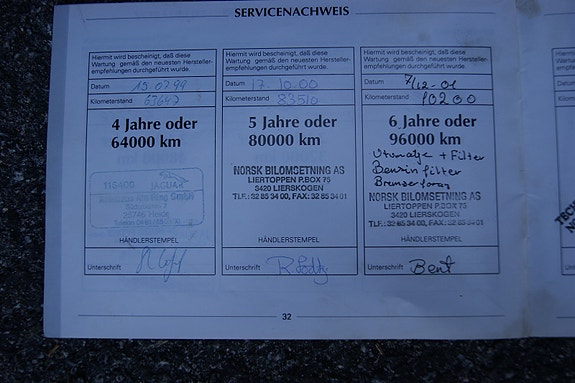 SERVICENACHWEIS
Hiermit wird bescheinigt, daß diese
Wartung gemäß den neuesten Hersteller-
empfehlungen durchgeführt wurde.
Datum 15 07 99
Kilometerstand 63647
4 Jahre oder
64000 km
116400 JAGUAR
HÄNDLERSTEMPEL
Unterschrift
Hiermit wird bescheinigt, daß diese
Wartung gemäß den neuesten Hersteller-
empfehlungen durchgeführt wurde.
Datum 17 10.00
Kilometerstand 83510
5 Jahre oder
80000 km
NORSK BILOMSETNING AS
LIERTOPPEN P.BOX 75
3420 LIERSKOGEN
TLF.: 32 85 34 00, FAX: 32 85 34 01
HÄNDLERSTEMPEL
Unterschrift
Hiermit wird bescheinigt, daß diese
Wartung gemäß den neuesten Hersteller-
empfehlungen durchgeführt wurde.
Datum 7/12-01
Kilometerstand 90200
6 Jahre oder
96000 km
+ Filter
Bensin filter
NORSK BILOMSETNING AS
LIERTOPPEN P.BOX 75
3420 LIERSKOGEN
TLF.: 32 85 34 00, FAX: 32 85 34 01
HÄNDLERSTEMPEL
Unterschrift Bent
32